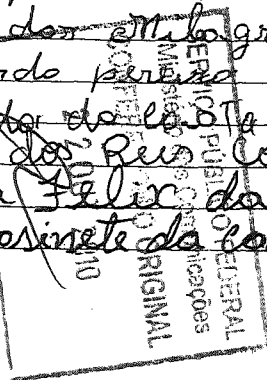 dos Milagr
rdo pereira
dor da costa
dos Reis Co
Felix da
osinete da Co
SERVIÇO PÚBLICO FEDERAL
Ministério das Comunicações
CONFERE COM O ORIGINAL